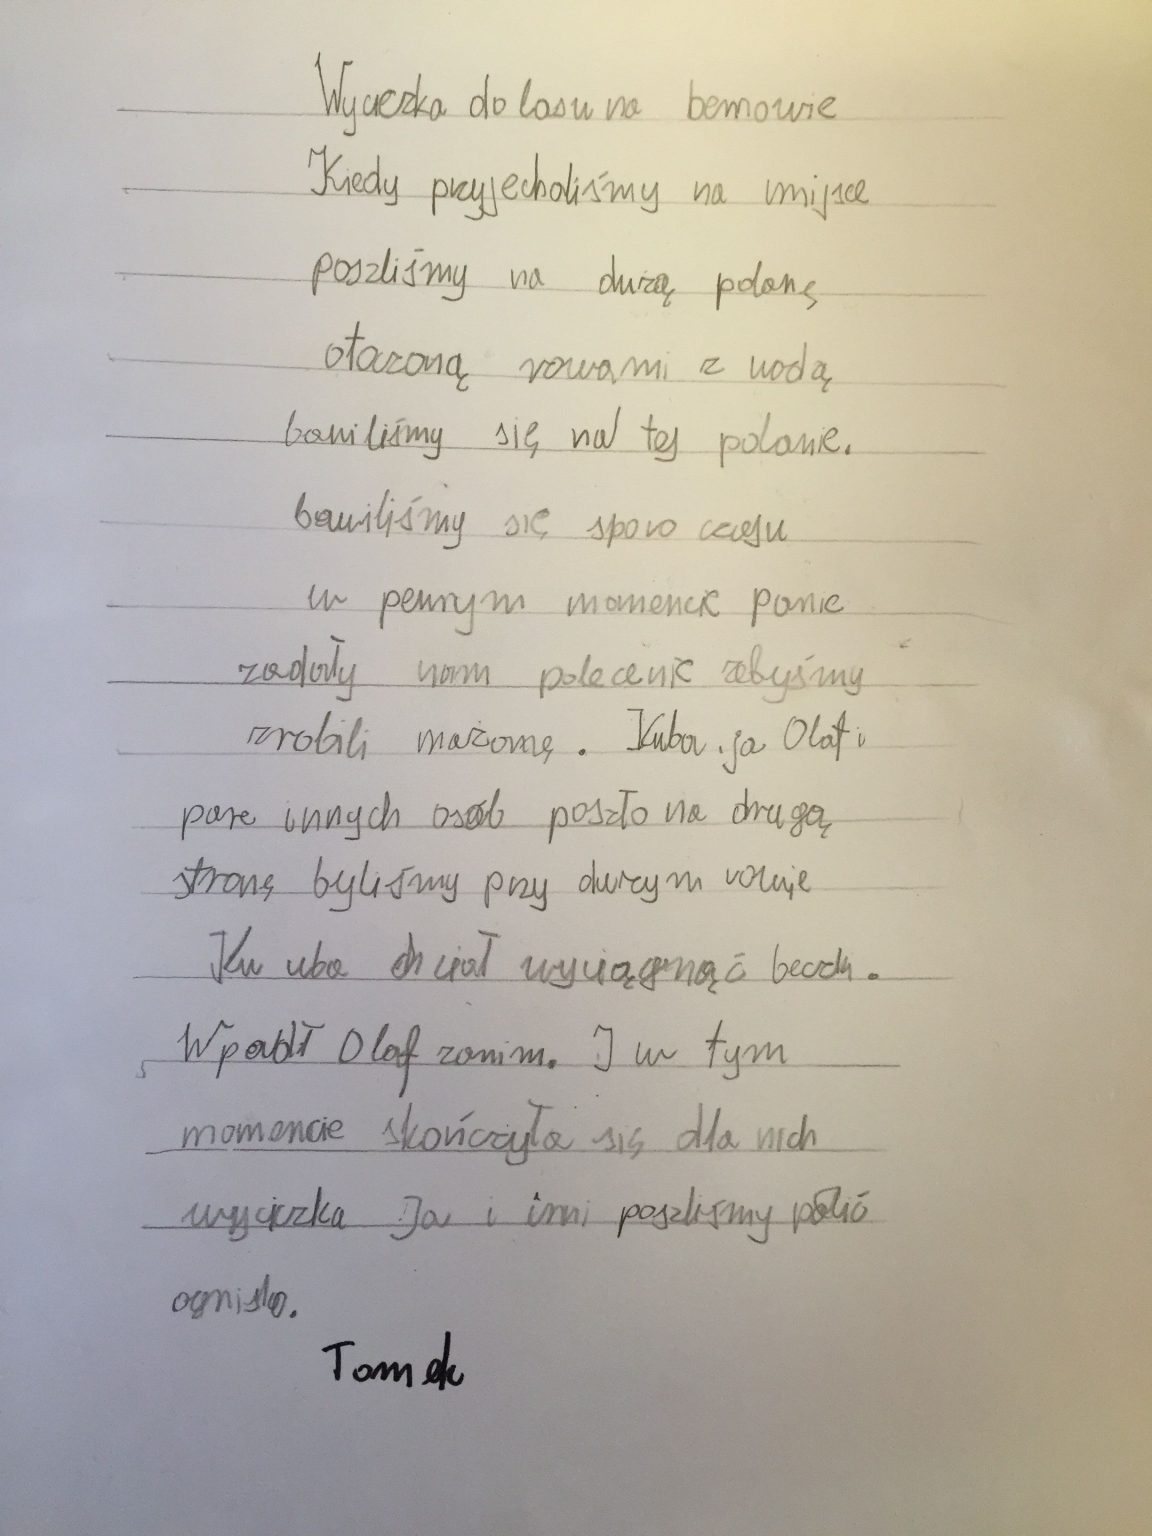 Wycieczka do lasu na bemowie
Kiedy przyjechaliśmy na miejsce
poszliśmy na dużą polanę
otaczoną rowami z wodą
bawiliśmy się na tej polanie.
bawiliśmy się sporo czasu
w pewnym momencie panie
zadały nam polecenie żebyśmy
zrobili mażannę. Kuba, ja Olaf i
pare innych osób poszło na drugą
stronę byliśmy przy dużym rowie
Ku uba chciał wyciągnąć
Wpadł Olaf zanim. I w tym
momencie skończyła się dla nich
wycieczka Ja i inni poszliśmy palić
ognisko.
Tomek